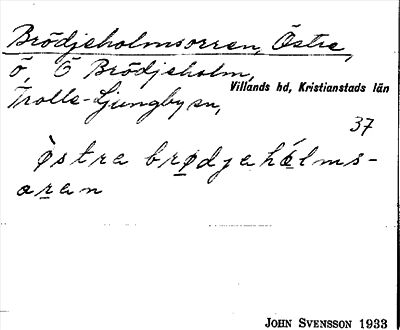 Brödjeholmsorren, Östre,
ö, Ö Brödjeholm,
Villands hd, Kristianstads län
Trolle-Ljungby sn,
37
òstre brødjehólms-
oren
JOHN SVENSSON 1933